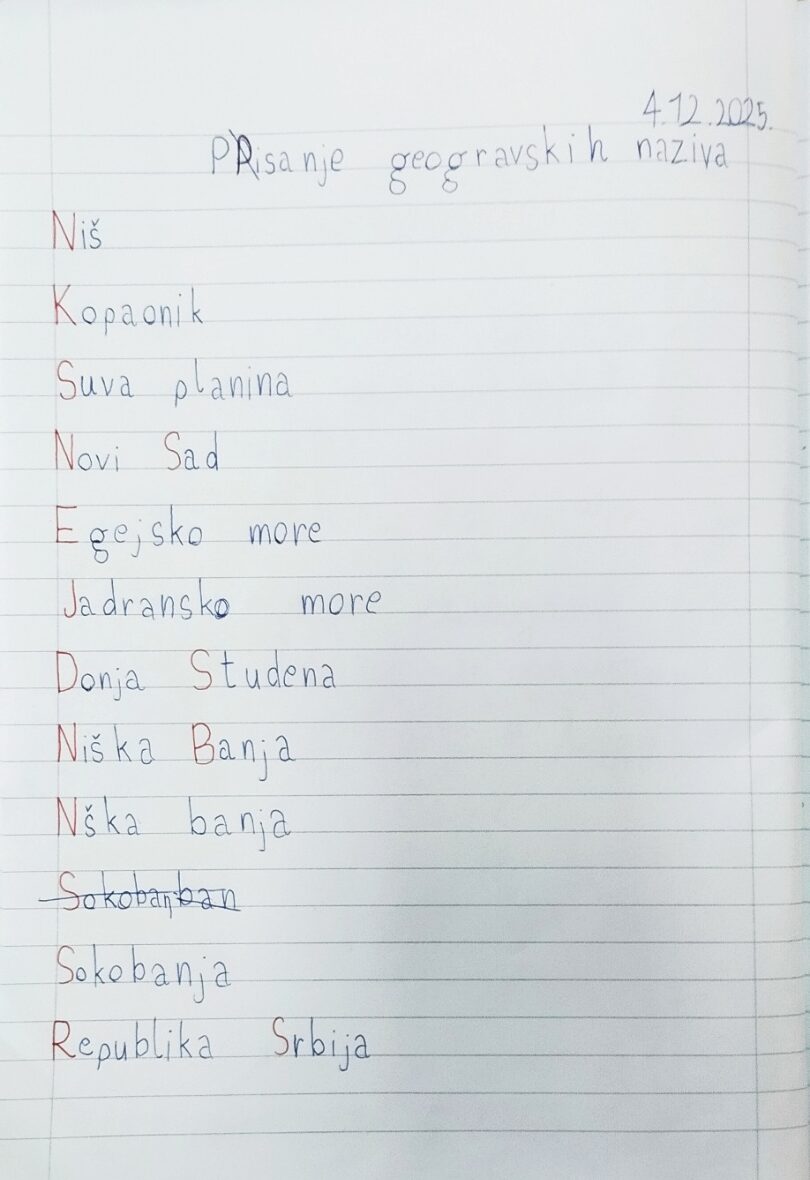 4.12.2025.
PRisanje geogravskih naziva
Niš
Kopaonik
Suva planina
Novi Sad
Egejsko more
Jadransko more
Donja Studena
Niška Banja
Nška banja
Sokobanban
Sokobanja
Republika Srbija